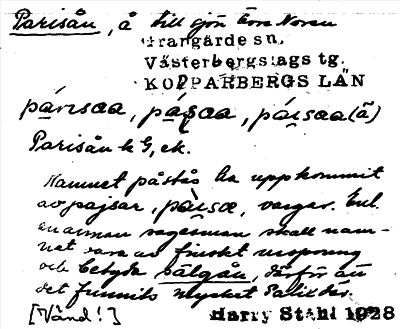 Parisån, å till sjön Övre Noren
Grangärde sn,
Västerbergslags tg.
KOPPARBERGS LÄN
Parisån k G, ek.
Namnet påstås ha uppkommit
av pajsar, vargar. Enl.
en annan sagesman skall nam-
net vara av finskt ursprung
och betyda sälgån, därför att
det funnits mycket salix där.
[Vänd!] Harry Ståhl 1928